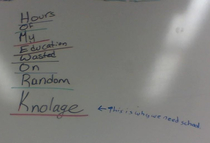 Hours
Of
My
Education
Wasted
On
Random
Knolage
← This is why we need school